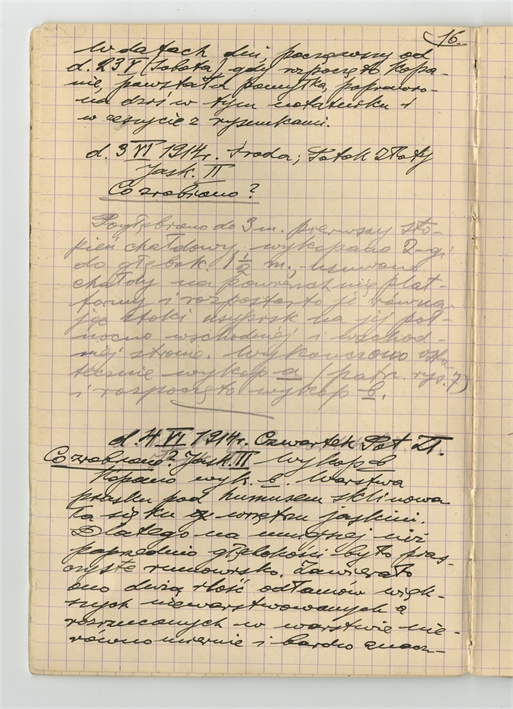 16.
W datach dni począwszy od
d. 23 V (Sobota), gdy rozpoczęto kopa-
nie, powstała pomyłka, poprawio-
na dziś w tym notatniku i
w zeszycie z rysunkami.
d. 3 VI 1914 r. Środa; Potok Złoty
Jask. II
Co zrobiono?
Pogłębiono do 3 m. pierwszy sto-
pień chałdowy, wykopano 2-gi
do głębok. 1 1/2 m., usuwano
chałdy na powierzchnię plat-
formy i rozpostarto je równa-
jąc stoki usypisk na jej pół-
nocno wschodniej i wschod-
niej stronie. Wykończono osta-
tecznie wykop a (patrz rys. 7)
i rozpoczęto wykop b.
d. 4 VI 1914 r. Czwartek Pot. Zł.
Co zrobiono? Jask. II Wykop b
Kopano wyk. b. Warstwa
piasku pod humusem sklinowa
ła się ku wnętrzu jaskini.
Dlatego na mniejszej niż
poprzednio głębokości było pias-
czyste rumowisko. Zawierało
ono dużą ilość odłamów więk-
szych niewarstwowanych a
rozrzuconych w warstwie nie-
równomiernie i bardzo znacz-